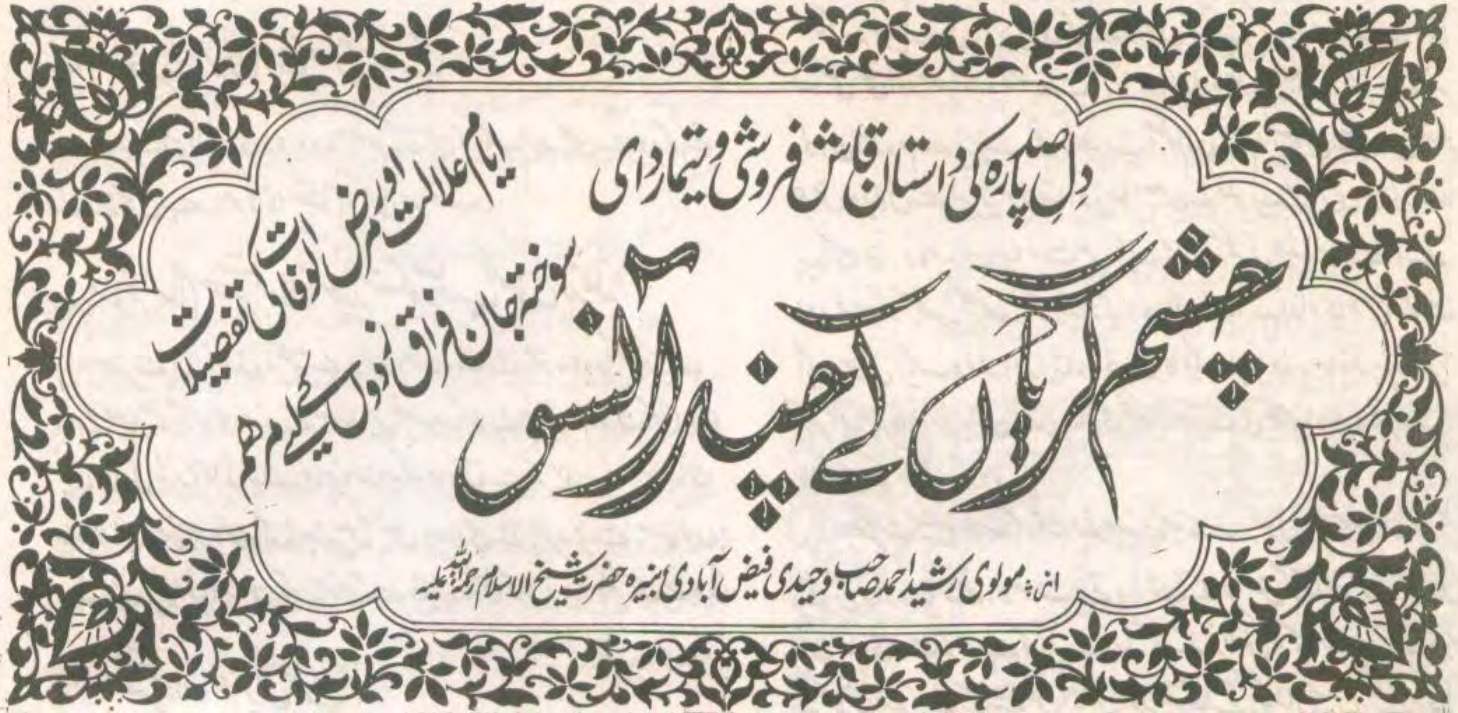 دلِ صد پارہ کی داستان قاش فروشی و تیمارداری
چشم گریاں کے چند آنسو
ایام علالت اور مرض الوفات کی تفصیلات
سوختہ جان فراق زدوں کیلئے مرہم
از: مولوی رشید احمد صاحب وحیدی فیض آبادی نبیرہ حضرت شیخ الاسلام رحمۃ اللہ علیہ